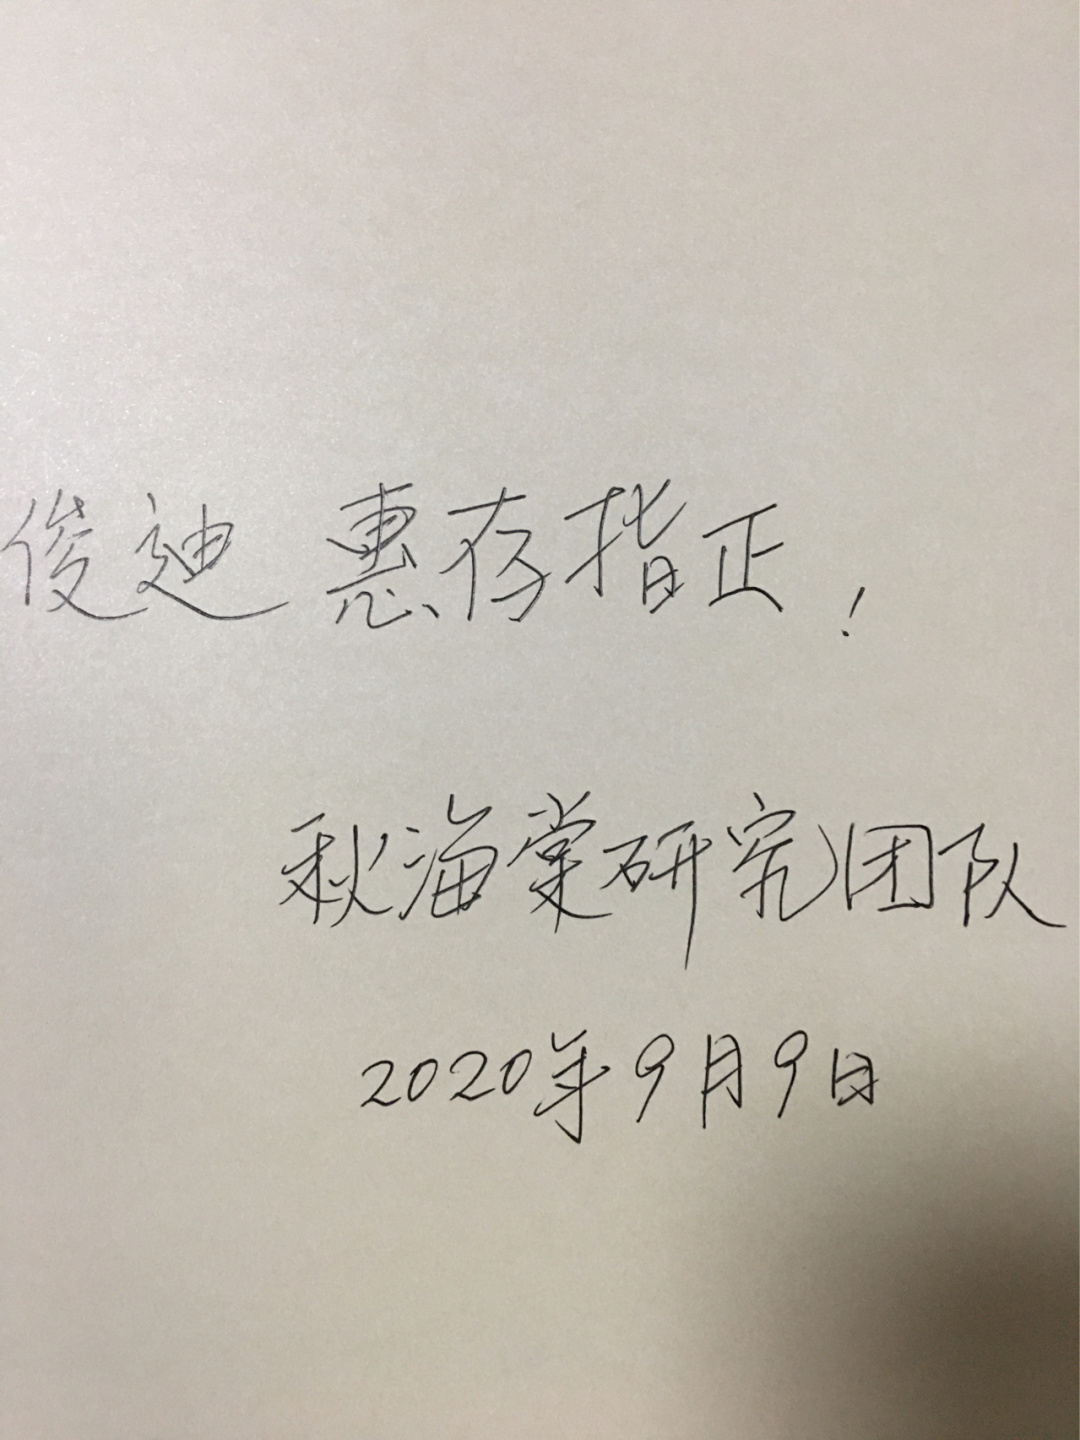 俊迪 惠存指正!
秋海棠研究团队
2020年9月9日